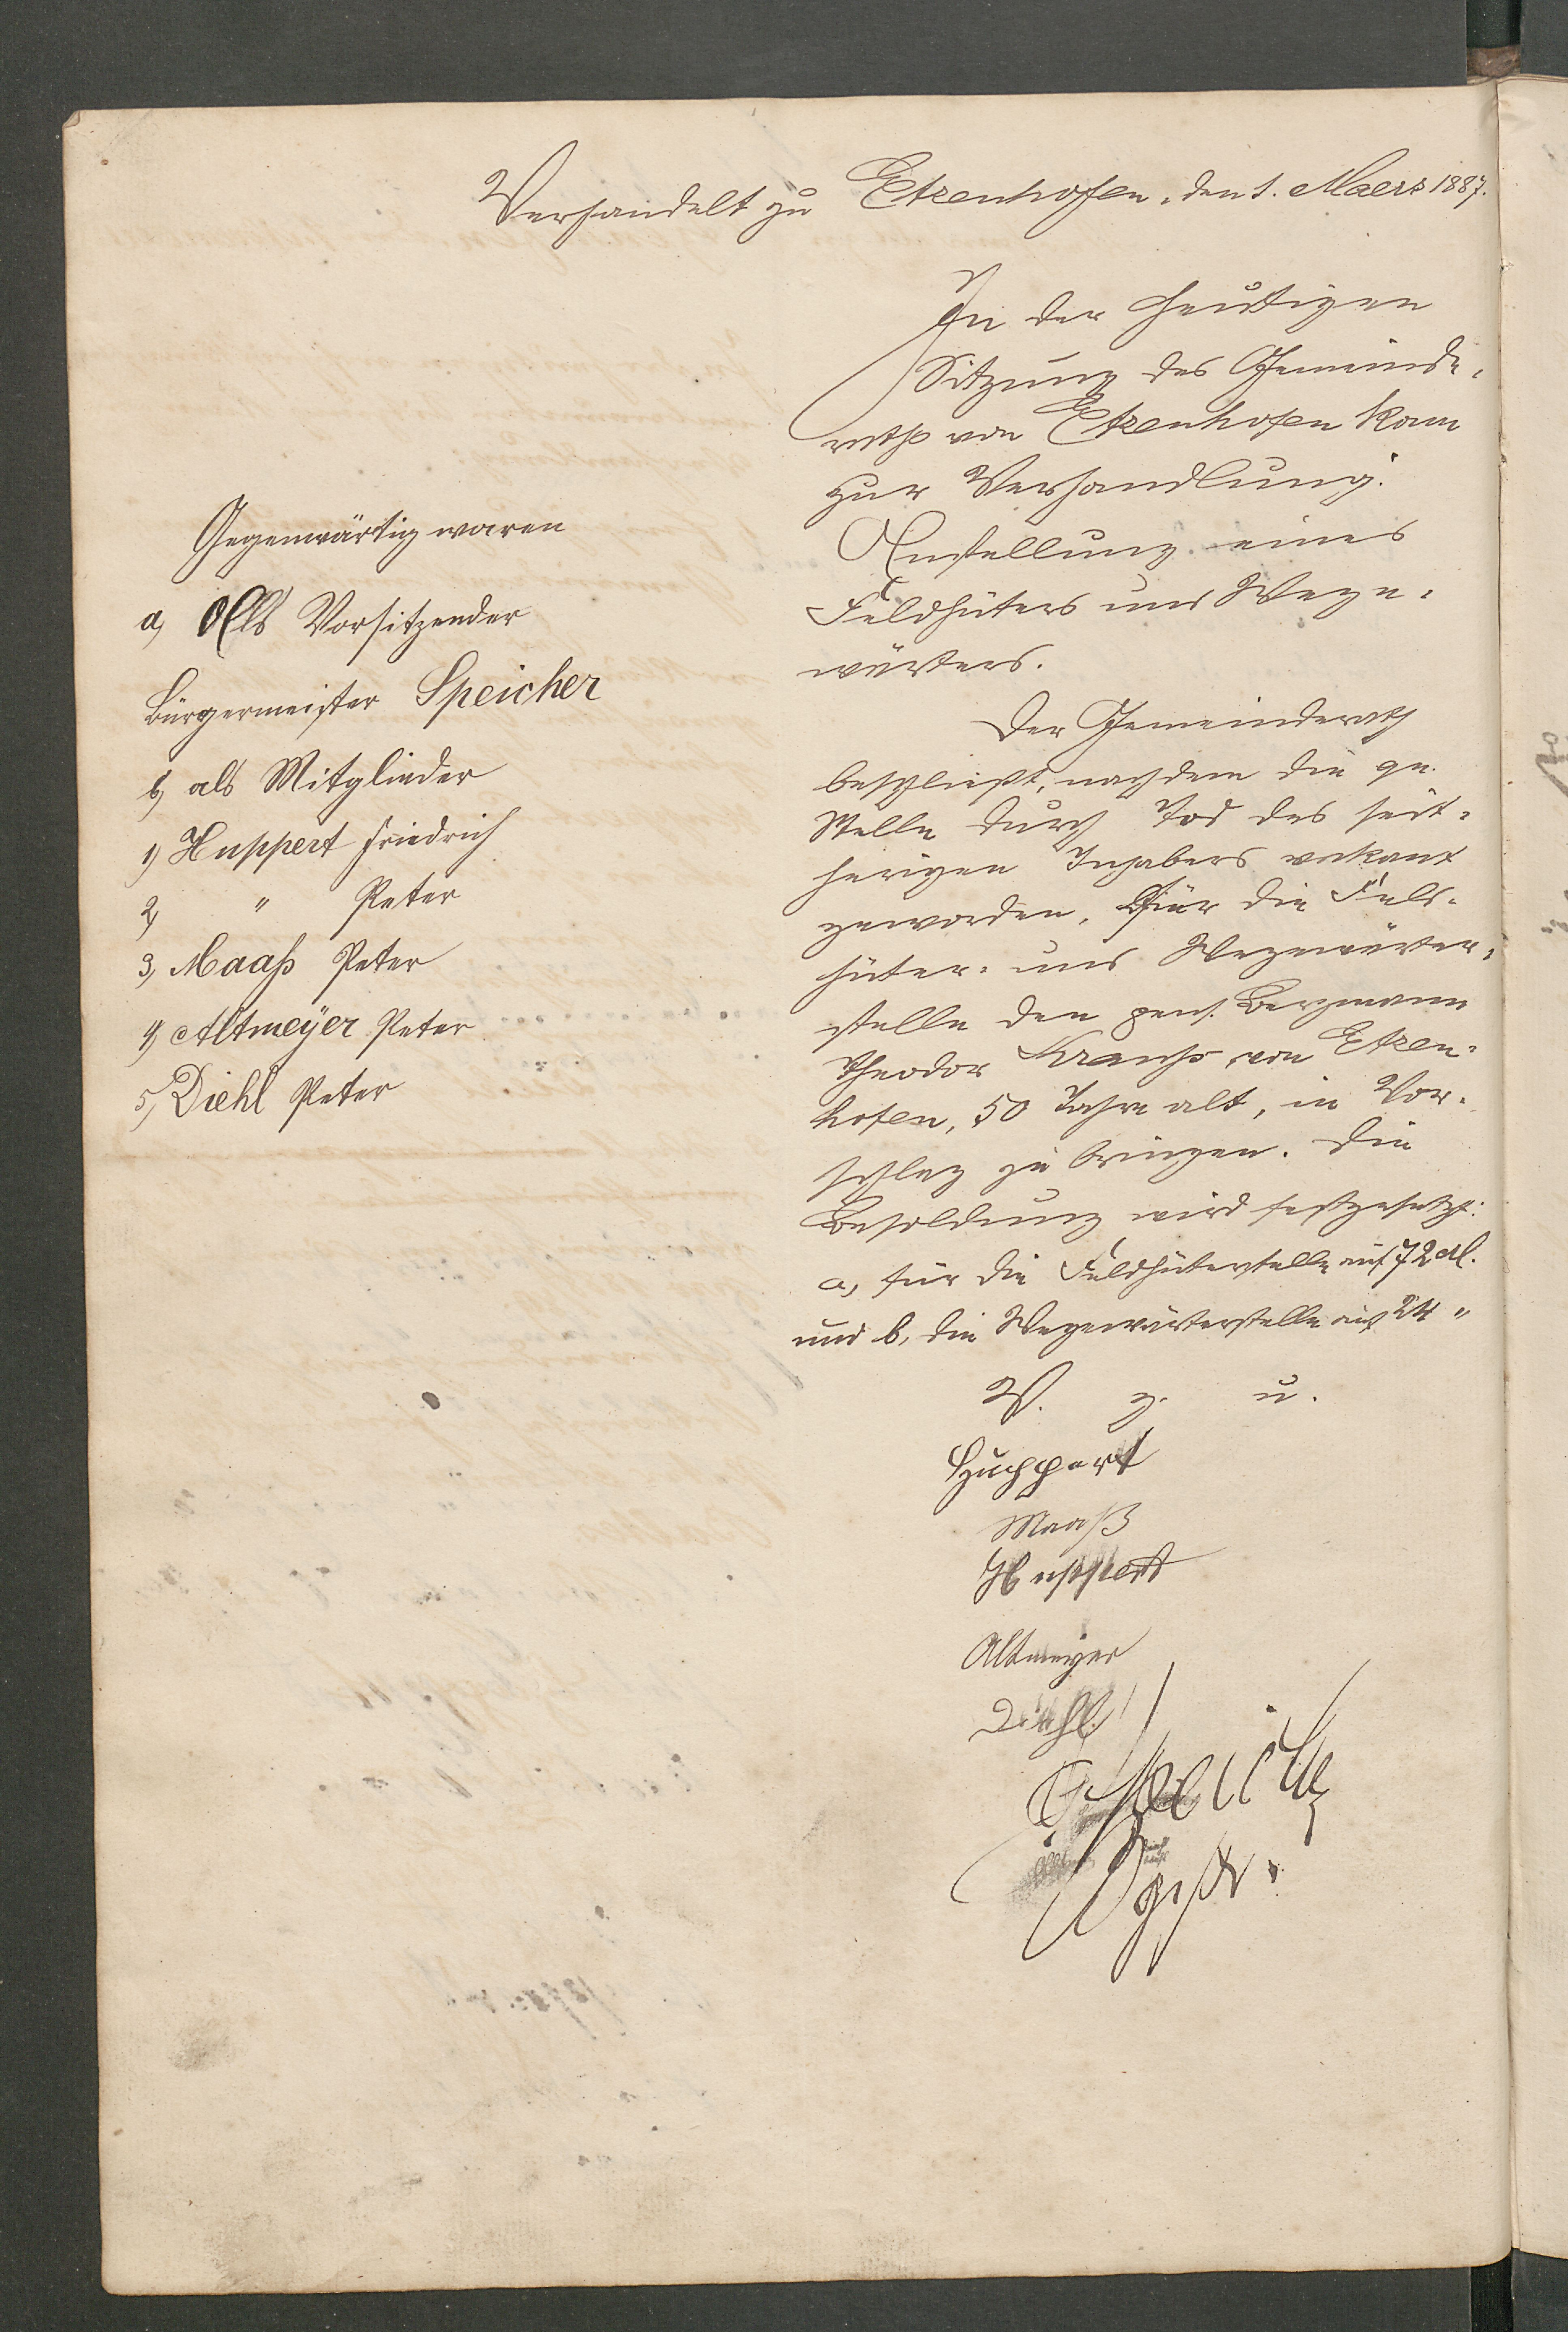 Verhandelt zu Etzenhofen, den 1. Maerz 1887.
Gegenwärtig waren
a, Als Vorsitzender
Bürgermeister Speicher
b, als Mitglieder
1, Huppert Friedrich
2, " Peter
3, Maaß Peter
4, Altmeyer Peter
5, Diehl Peter
In der heutigen
Sitzung des Gemeinde-
raths von Etzenhofen kam
zur Verhandlung:
Anstellung eines
Feldhüters und Wege-
wärters.
Der Gemeinderath
beschließt, nachdem die qu.
Stelle durch Tod des seit-
herigen Inhabers vakant
geworden, für die Feld-
hüter- und Wegewärter-
stelle den pens. Bergmann
Theodor Krauss von Etzen-
hofen, 50 Jahre alt, in Vor-
schlag zu bringen. Die
Besoldung wird festgesetzt:
a, für die Feldhüterstelle auf 72 M.
und b, die Wegewärterstelle auf 24 "
V. g. u.
Huppert
Maaß
Huppert
Altmeyer
Diehl
Speicher
Bgmstr.